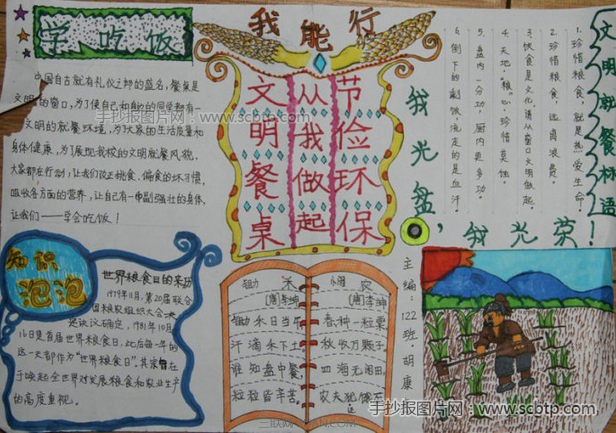 学吃饭
中国自古就有礼仪之邦的盛名，餐桌是
文明的窗口，为了使自己和身的同学都有一
文明的就餐环境，为大家的生活质量和
身体健康，为了展现我校的文明就餐风貌，
大家都在行动，让我们改正挑食、偏食的坏习惯，
吸收各方面的营养，让自己有一串副强壮的身体，
让我们——学会吃饭！
我能行
节俭环保
从我做起
文明餐桌
文明就餐标语
1. 珍惜粮食，就是热爱生命。
2. 珍惜粮食，远离浪费。
3. 饮食是文化，请从窗口文明做起。
4. 天地，粮心，珍惜莫蚀。
5. 盘内一分功，厨内更多功。
6. 倒下的剩饭，流走的是血汗。
我光盘，我光荣！
知识泡泡
世界粮食日的来历
1979年11月，第20届联合
国粮农组织大会决
定决议确定，1981年10月
16日是首届世界粮食日，此后每一年的
这一天都作为“世界粮食日”。其宗旨在
于唤起全世界对发展粮食和农业生产
的高度重视。
锄禾
[唐]李绅
锄禾日当午
汗滴禾下土
谁知盘中餐
粒粒皆辛苦。
悯农
[唐]李绅
春种一粒粟
秋收万颗子
四海无闲田
农夫犹饿死
主编：122班 胡康
手抄报图片网：www.scbtp.com
手抄报图片网：www.scbtp.com